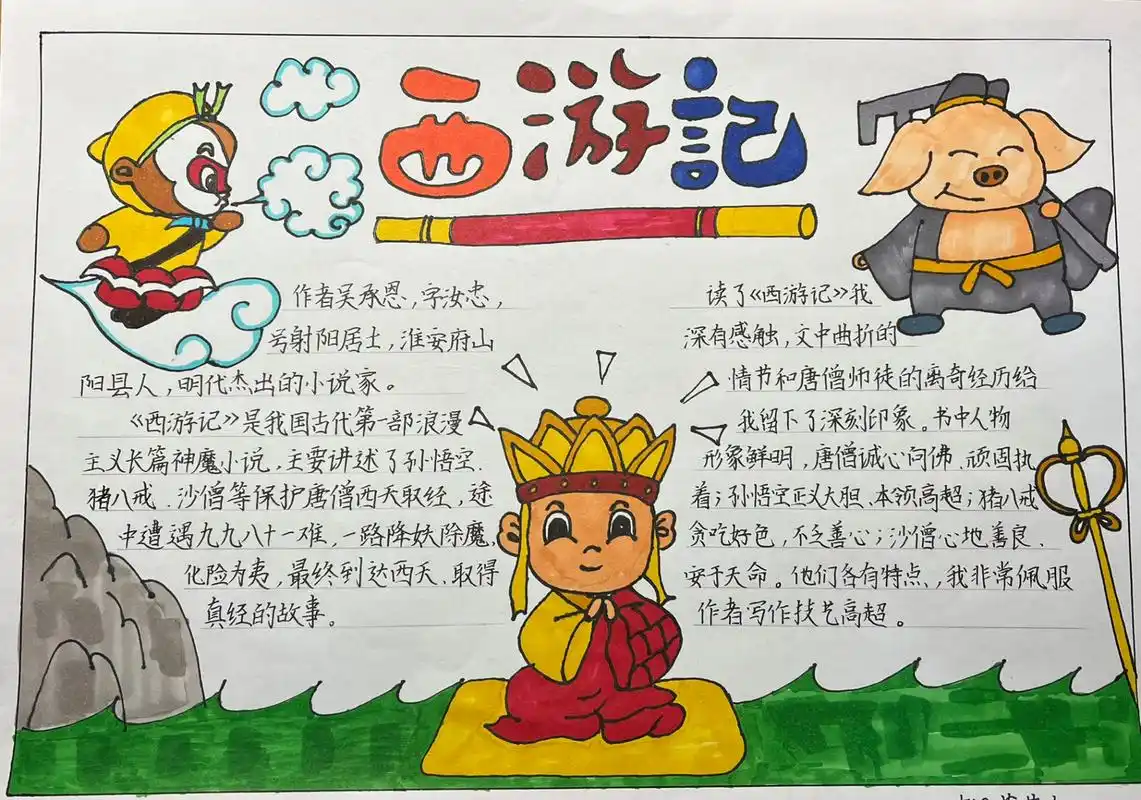 西游記
作者吴承恩，字汝忠，
号射阳居士，淮安府山
阳县人，明代杰出的小说家。
《西游记》是我国古代第一部浪漫
主义长篇神魔小说，主要讲述了孙悟空、
猪八戒、沙僧等保护唐僧西天取经，途
中遭遇九九八十一难，一路降妖除魔，
化险为夷，最终到达西天、取得
真经的故事。
读了《西游记》我
深有感触，文中曲折的
情节和唐僧师徒的离奇经历给
我留下了深刻印象。书中人物
形象鲜明，唐僧诚心向佛、顽固执
着；孙悟空正义大胆、本领高超；猪八戒
贪吃好色，不乏善心；沙僧心地善良、
安于天命。他们各有特点，我非常佩服
作者写作技艺高超。